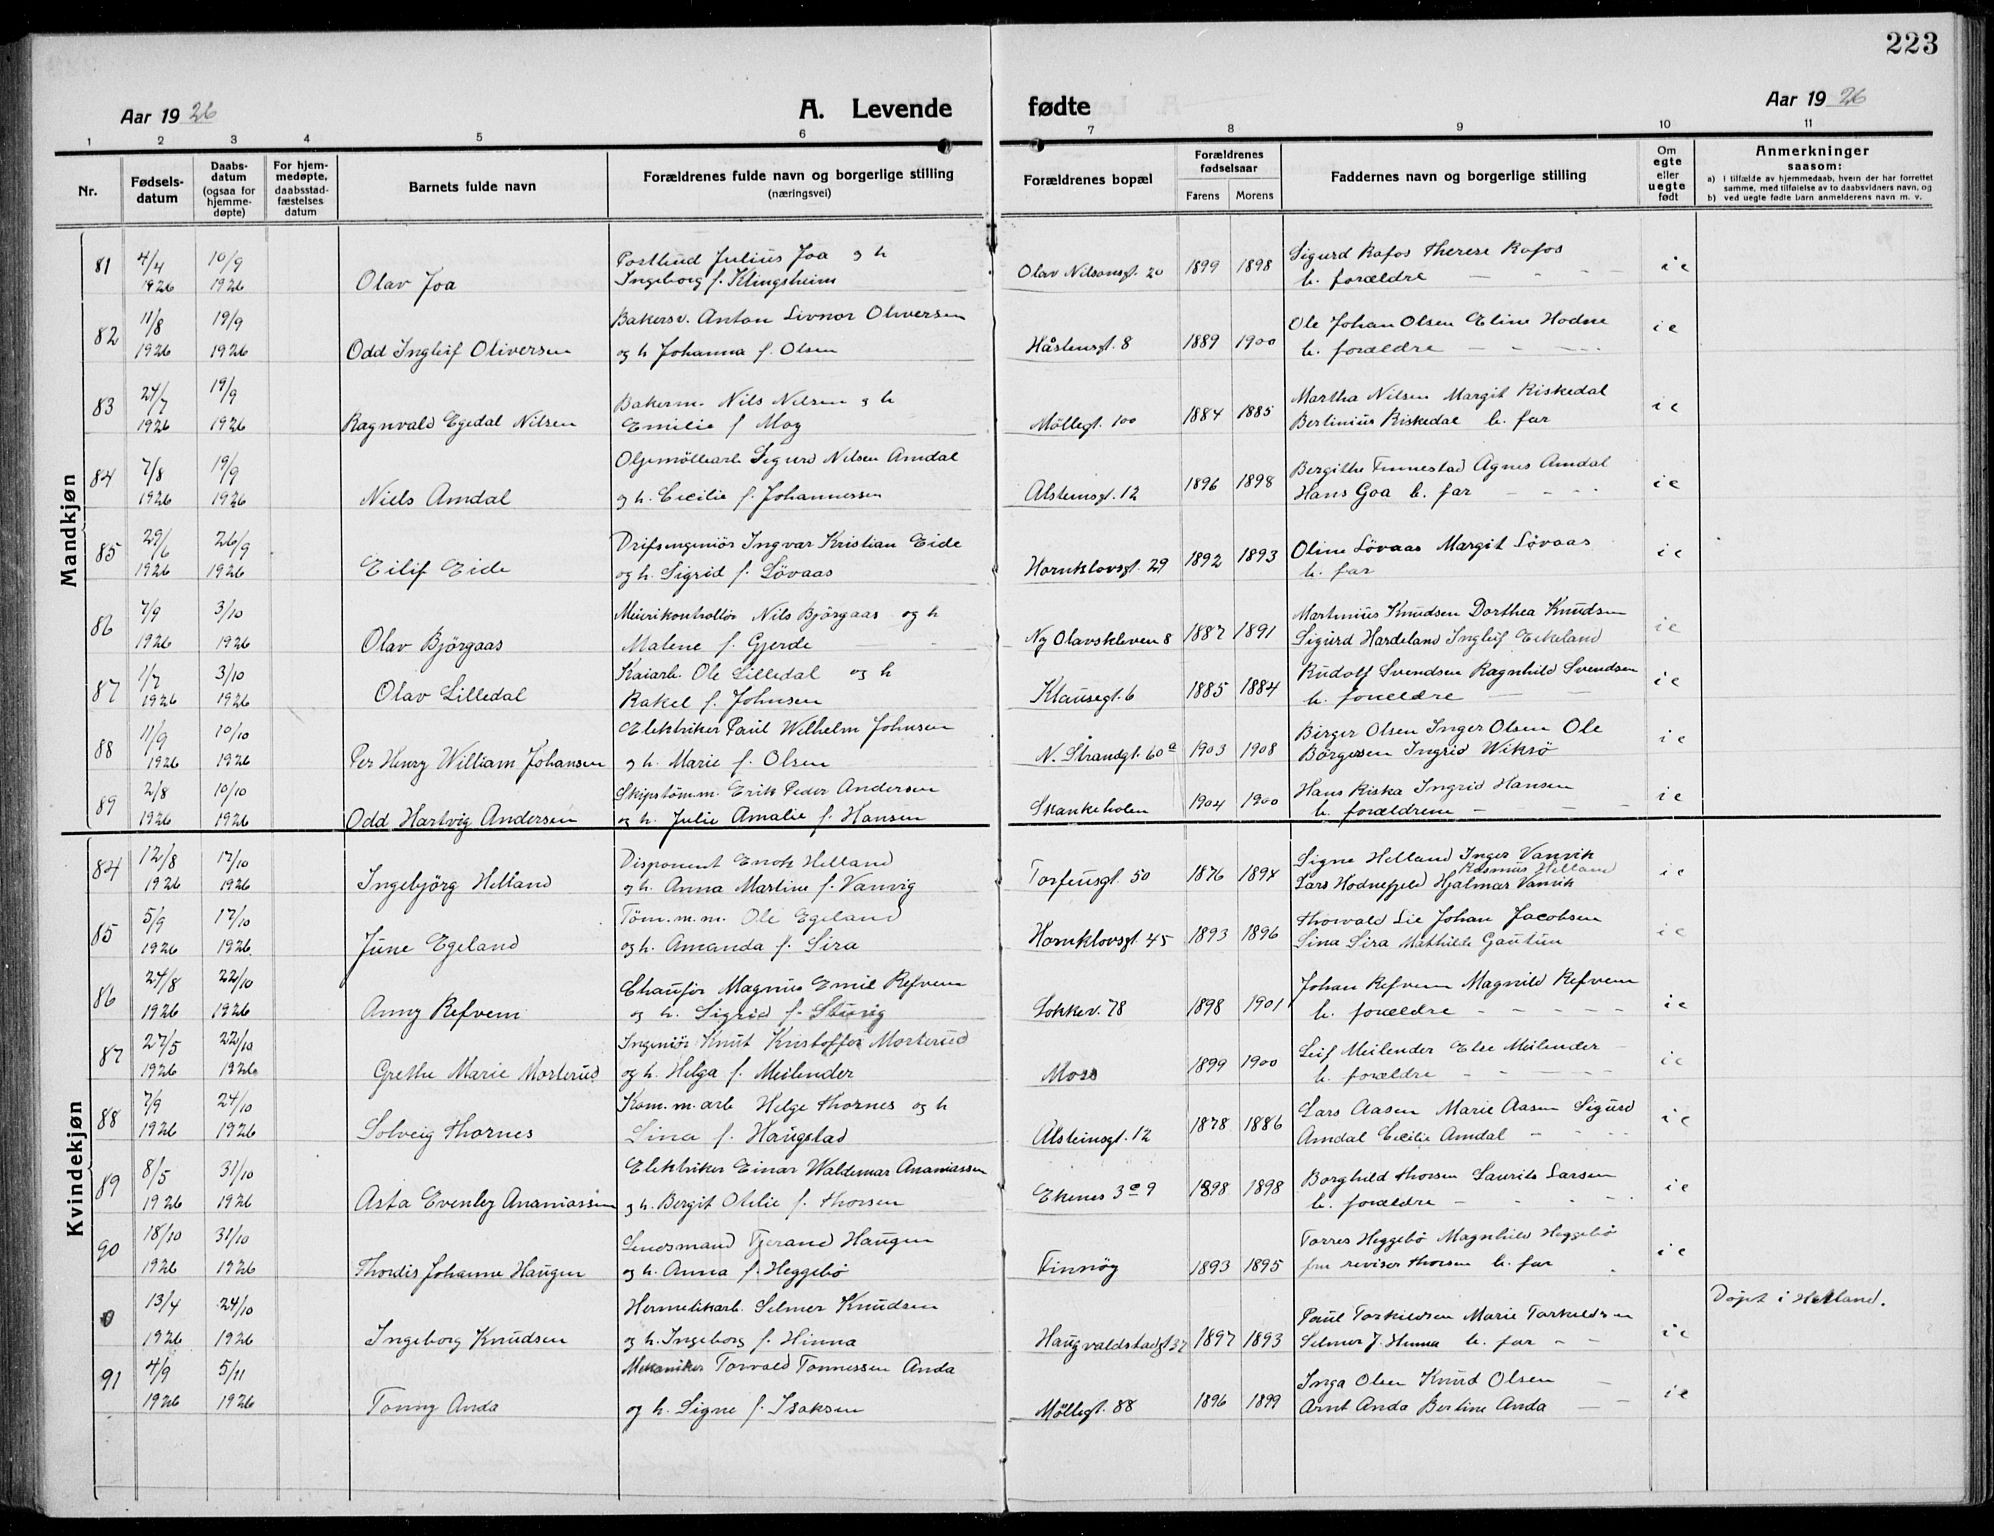 223
Aar 1926
A. Levende fødte
Aar 1926
1 2 3 4 5 6 7 8 9 10 11
Nr.
Fødsels-
datum
Daabs-
datum
(ogsaa for
hjemme-
døpte)
For hjem-
medøpte,
daabsstad-
fæstelses
datum
Barnets fulde navn
Forældrenes fulde navn og borgerlige stilling
(næringsvei)
Forældrenes bopæl
Forældrenes
fødselsaar
Farens Morens
Faddernes navn og borgerlige stilling
Om
egte
eller
uegte
født
Anmerkninger
saasom:
a) i tilfælde av hjemmedaab, hvem der har forrettet
samme, med tilføielse av to daabsvidners navn, og
b) ved uegte fødte barn anmelderens navn m. v.
Mandkjøn
81 4/4 10/9 Postbud Julius Joa og h Olav Nilsonsgt. 20 1899 1898 Sigurd Rafos Therese Rafos i e
1926 1926 Olav Joa Ingeborg f. Klingsheim b. forældre
82 11/8 19/9 Bakersv. Anton Livnor Oliversen Håsteinsgt. 8 1889 1900 Ole Johan Olsen Eline Hodne i e
1926 1926 Odd Ingleif Oliversen og h Johanna f. Olsen b. forældre
83 27/7 19/9 Bakerm. Nils Nilsen og h Møllegt. 100 1884 1885 Martha Nilsen Margit Riskedal i e
1926 1926 Ragnvald Egedal Nilsen Emilie f Moy Berlinius Riskedal b. far
84 7/8 19/9 Oljemøllearb Sigurd Nilsen Amdal Alsteinsgt. 12 1896 1898 Bergithe Finnestad Agnes Amdal i e
1926 1926 Niels Amdal og h. Cecilie f. Johannessen Hans Goa b. far
85 29/6 26/9 Drifsingeniør Ingvar Kristian Eide Hornklovsgt. 29 1892 1893 Oline Løvaas Margit Løvaas i e
1926 1926 Eilif Eide og h. Sigrid f. Løvaas b. far
86 7/9 3/10 Meierikontrollør Nils Bjørgaas og h Ny Olavskleven 8 1887 1891 Martinius Knudsen Dorthea Knudsen i e
1926 1926 Olav Bjørgaas Malene f. Gjerde Sigurd Hardeland Ingleif Eikeland
87 1/7 3/10 Kaiarb. Ole Lilledal og h Klausegt. 6 1885 1884 Rudolf Svendsen Ragnhild Svendsen i e
1926 1926 Olav Lilledal Rakel f. Johnsen b. forældre
88 11/9 10/10 Elektriker Paul Wilhelm Johnsen N. Strandgt. 60a 1903 1908 Birger Olsen Inger Olsen Ole i e
1926 1926 Per Henry William Johansen og h. Marie f. Olsen Børgesen Ingrid Wiksø
89 2/8 10/10 Skipstømm. Erik Peder Andersen Skankeholen 1904 1900 Hans Riska Ingrid Hansen i e
1926 1926 Odd Hartvig Andersen og h. Julie Amalie f. Hansen b. forældrene
Kvindekjøn
84 12/8 17/10 Disponent Enok Helland Torfeusgt. 50 1876 1894 Signe Helland Inger Vanvik i e
Rasmus Helland
1926 1926 Ingebjørg Helland og h. Anna Martine f. Vanvig Lars Hodnefjeld Hjalmar Vanvik
85 5/9 17/10 Tøm. m. m. Ole Egeland Hornklovsgt. 45 1893 1896 Thorvald Lie Johan Jacobsen i e
1926 1926. June Egeland og h. Amanda f. Sira Sina Sira Mathilde Gautun
86 24/8 22/10 Chaufør Magnus Emil Refvem Lokkev. 78 1898 1901 Johan Refvem Magnild Refvem i e
1926 1926 Anny Refvem og h. Sigrid f. b. forældre
87 27/5 22/10 Ingeniør Knut Kristoffer Morterud Moss 1899 1900 Leif Meilender Else Meilender i e
1926 1926 Grethe Marie Morterud og h. Helga f. Meilender b. forældre
88 7/9 24/10 Kom. m. arb Helge Thornes og h Alsteinsgt. 12 1878 1886 Lars Aasen Marie Aasen Sigurd i e
1926 1926 Solveig Thornes Lina f. Haugstad Amdal Cecilie Amdal
89 8/5 31/10 Elektriker Einar Waldemar Ananiassen Ekenes 3e 9 1898 1898 Borghild Thorsen Laurits Larsen i e
1926 1926 Asta Evenly Ananiassen og h. Bergit Otilie f. Thorsen b. forældre
90 18/10 31/10 Lensmand Tjerand Haugen Finnøy 1893 1895 Torres Heggebø Magnhild Heggebø i e
1926 1926 Thordis Johanne Haugen og h. Anna f. Heggebø fru revisor Thorsen b. far
0 13/4 24/10 Hermetikarb. Selmer Knudsen Haugvaldstadgt 37 1897 1893 Paul Torkildsen Marie Torkildsen i e Døpt i Hetland.
1926 1926 Ingeborg Knudsen og h. Ingeborg f. Hinna Selmer J. Hinna b. far
91 4/9 5/11 Mekaniker Torvald Tønnessen Anda Møllegt. 88 1896 1899 Inga Olsen Knud Olsen i e
1926 1926 Tonny Anda og h. Signe f. Isaksen Arnt Anda Bertine Anda